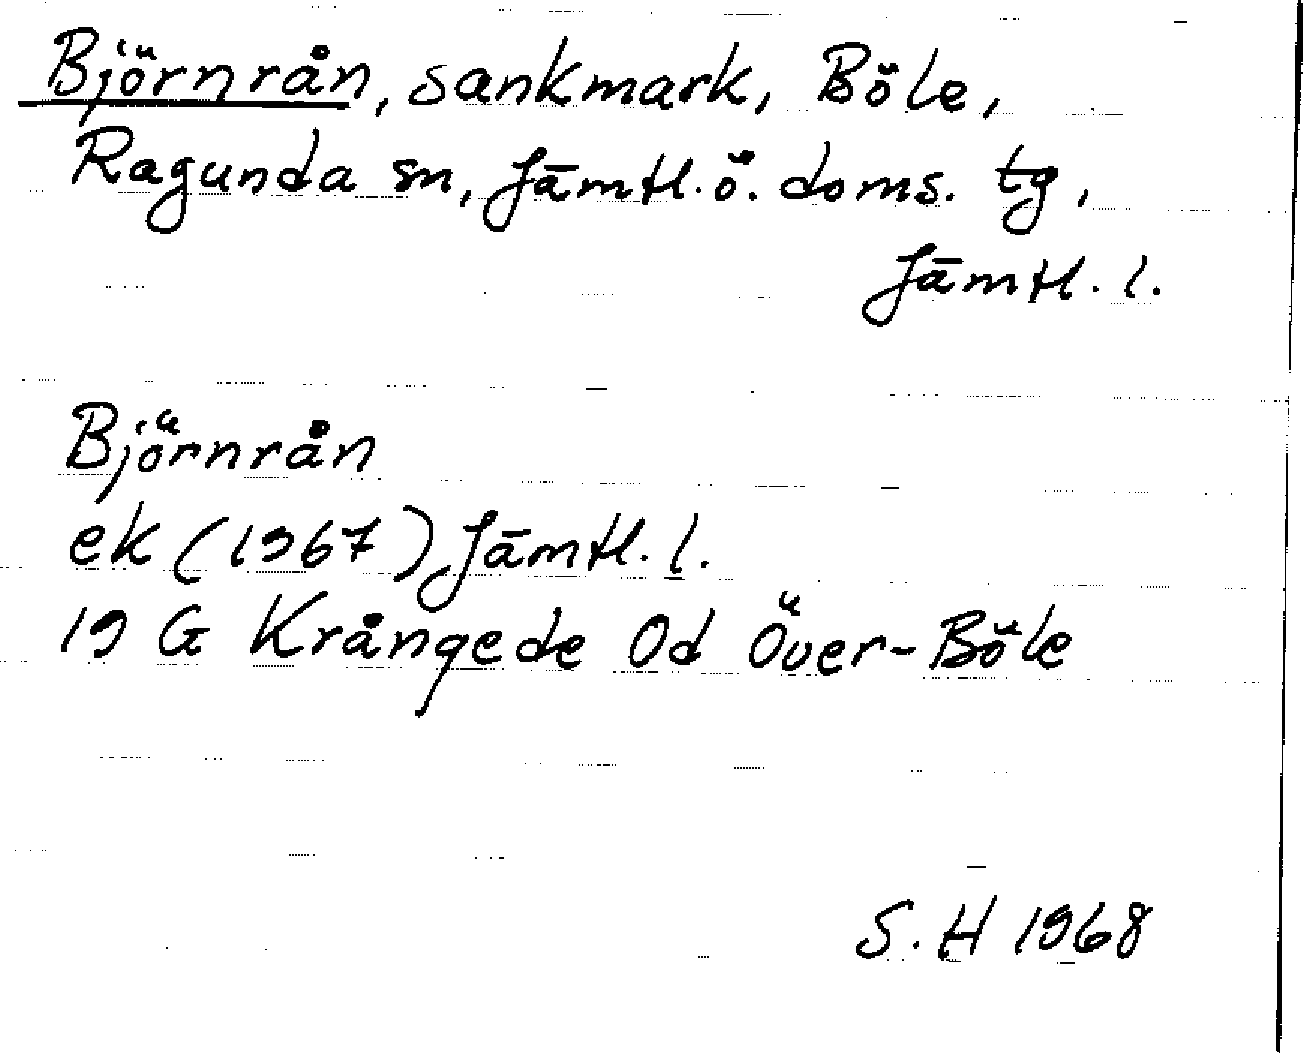 Björnrån, sankmark, Böle,
Ragunda sn, Jämtl. ö. doms. tg,
Jämtl. l.
Björnrån
ek (1967) Jämtl. l.
19 G Krångede 0d Över-Böle
S. H 1968